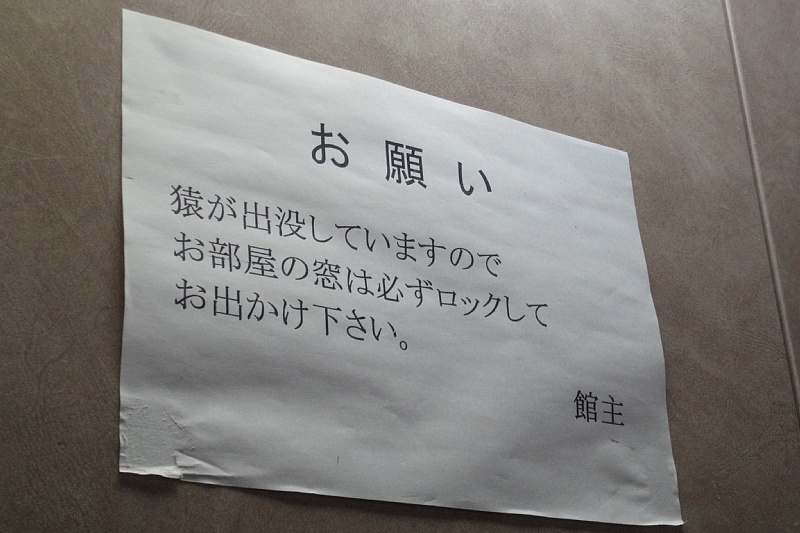 お願い
猿が出没していますので
お部屋の窓は必ずロックして
お出かけ下さい。
館主